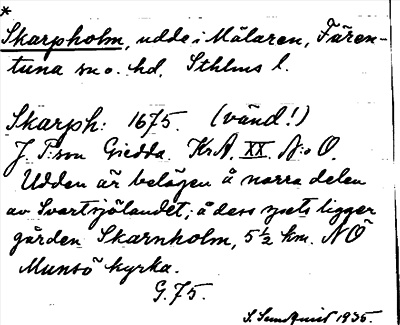 *
Skarpholm, udde i Mälaren, Fären-
tuna sn o. hd, Sthlms l.
Skarph: 1675. (vänd!)
J. T:son Giedda. KrA. XX. N:o O.
Udden är belägen å norra delen
av Svartsjölandet; å dess spets ligger
gården Skarnholm, 5½ km. NÖ
Munsö kyrka.
G. 75.
S. Sundquist 1935.